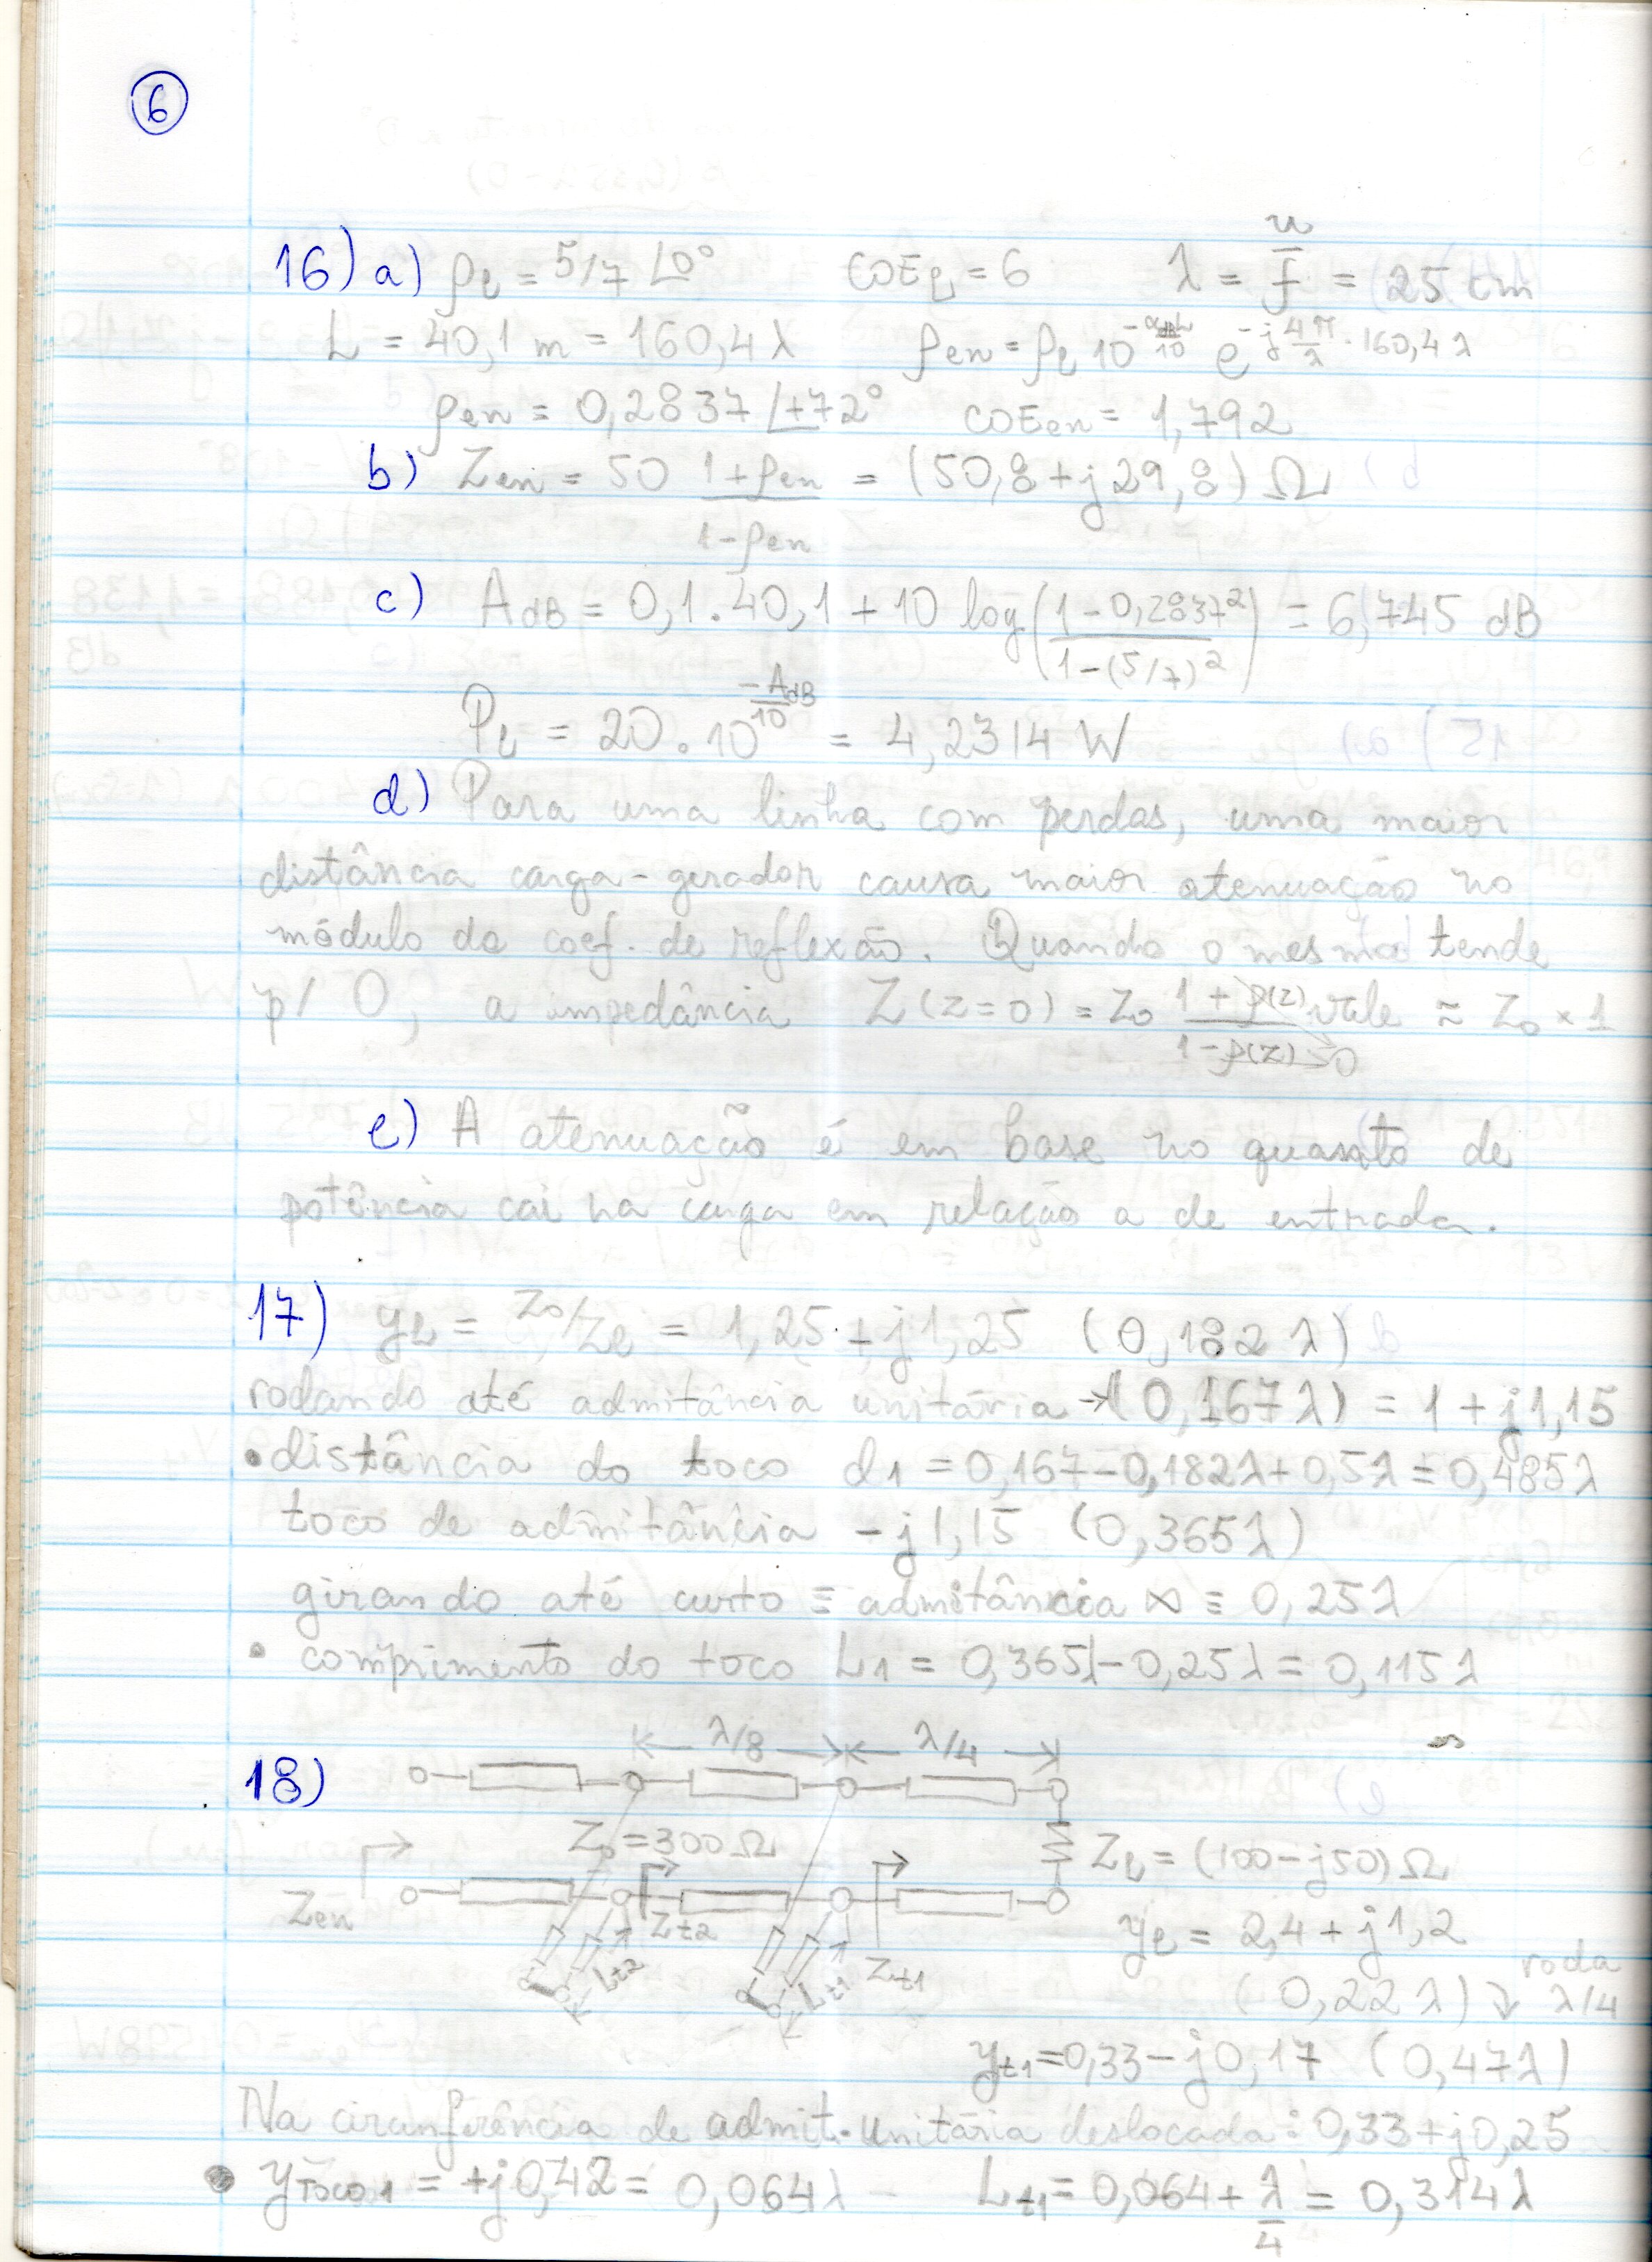 6
16) a) ρℓ = 5/7 ∠0° COEℓ = 6 λ = u/f = 25 cm
L = 40,1 m = 160,4 λ ρen = ρℓ 10^(-αdBL/10) e^(-j 4π/λ · 160,4 λ)
ρen = 0,2837 ∠+72° COEen = 1,792
b) Zen = 50 (1+ρen)/(1-ρen) = (50,8 + j29,8) Ω
c) AdB = 0,1 . 40,1 + 10 log ((1-0,2837²)/(1-(5/7)²)) = 6,745 dB
Pℓ = 20 . 10^(-AdB/10) = 4,2314 W
d) Para uma linha com perdas, uma maior
distância carga-gerador causa maior atenuação no
módulo do coef. de reflexão. Quando o mesmo tende
p/ 0, a impedância Z(z=0) = Z0 (1+ρ(z))/(1-ρ(z)) →0 vale ≈ Z0 × 1
e) A atenuação é em base no quanto de
potência cai na carga em relação a de entrada.
17) yL = Z0/Zℓ = 1,25 + j1,25 (0,182 λ)
rodando até admitância unitária → (0,167 λ) = 1 + j1,15
• distância do toco d1 = 0,167 - 0,182λ + 0,5λ = 0,485λ
toco de admitância - j1,15 (0,365λ)
girando até curto ≡ admitância ∞ ≡ 0,25λ
• comprimento do toco L1 = 0,365λ - 0,25λ = 0,115λ
18) λ/8 λ/4
Z0 = 300Ω Zℓ = (100 - j50) Ω
Zen Zt2 Zt1 yℓ = 2,4 + j1,2
Lt2 Lt1 (0,22 λ) ↓ roda λ/4
yt1 = 0,33 - j0,17 (0,47λ)
Na circunferência de admit. unitária deslocada: 0,33 + j0,25
• yTOCO1 = +j0,42 = 0,064λ - Lt1 = 0,064 + λ/4 = 0,314 λ